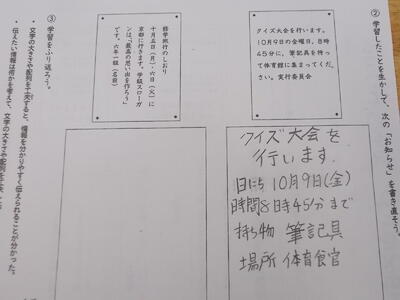 ② 学習したことを生かして、次の「お知らせ」を書き直そう。
クイズ大会を行います。
10月9日の金曜日、8時
45分に、筆記具を持っ
て体育館に集まってくだ
さい。実行委員会
修学旅行のしおり
十月五日(月)・六日(火)に
京都に行きます。学級スローガ
ンは、「最高の思い出を作ろう」
です。六年一組(名前)
クイズ大会を
行います.
日にち 10月9日(金)
時間 8時45分まで
持ち物 筆記具
場所 体育食官
③ 学習をふり返ろう。
・文字の大きさや配列を工夫すると、情報を分かりやすく伝えられることが分かった。
・伝えたい情報は何かを考えて、文字の大きさや配列を工夫し